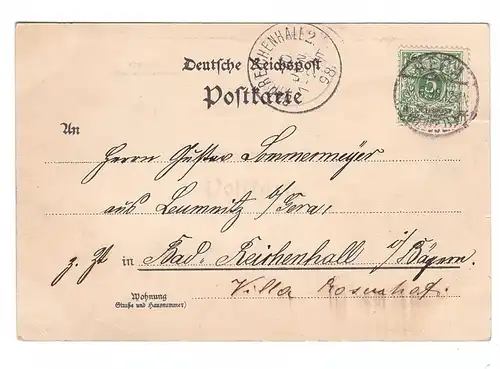 Deutsche Reichspost
Postkarte
REICHENHALL 2.
98.
An
Herrn Gustav Sommermeyer
aus Leumnitz b/Gera,
z. Zt in Bad. Reichenhall i/Bayern.
Villa Rosenhof
Wohnung
(Straße und Hausnummer)